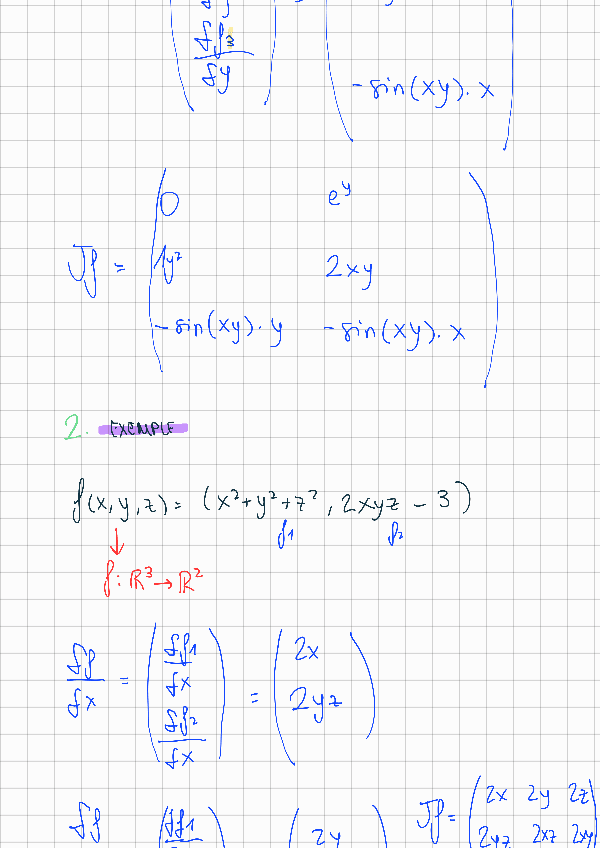 δf₃
δy
-sin(xy).x
0 e^y
Jf = 1y² 2xy
-sin(xy).y -sin(xy).x
2. EXEMPLE
f(x,y,z) = (x²+y²+z², 2xyz - 3)
f₁ f₂
↓
f: ℝ³→ℝ²
δf/δx = (δf₁/δx δf₂/δx) = (2x 2yz)
Jf = (2x 2y 2z
2yz 2xz 2xy
δf δf₁ 2y